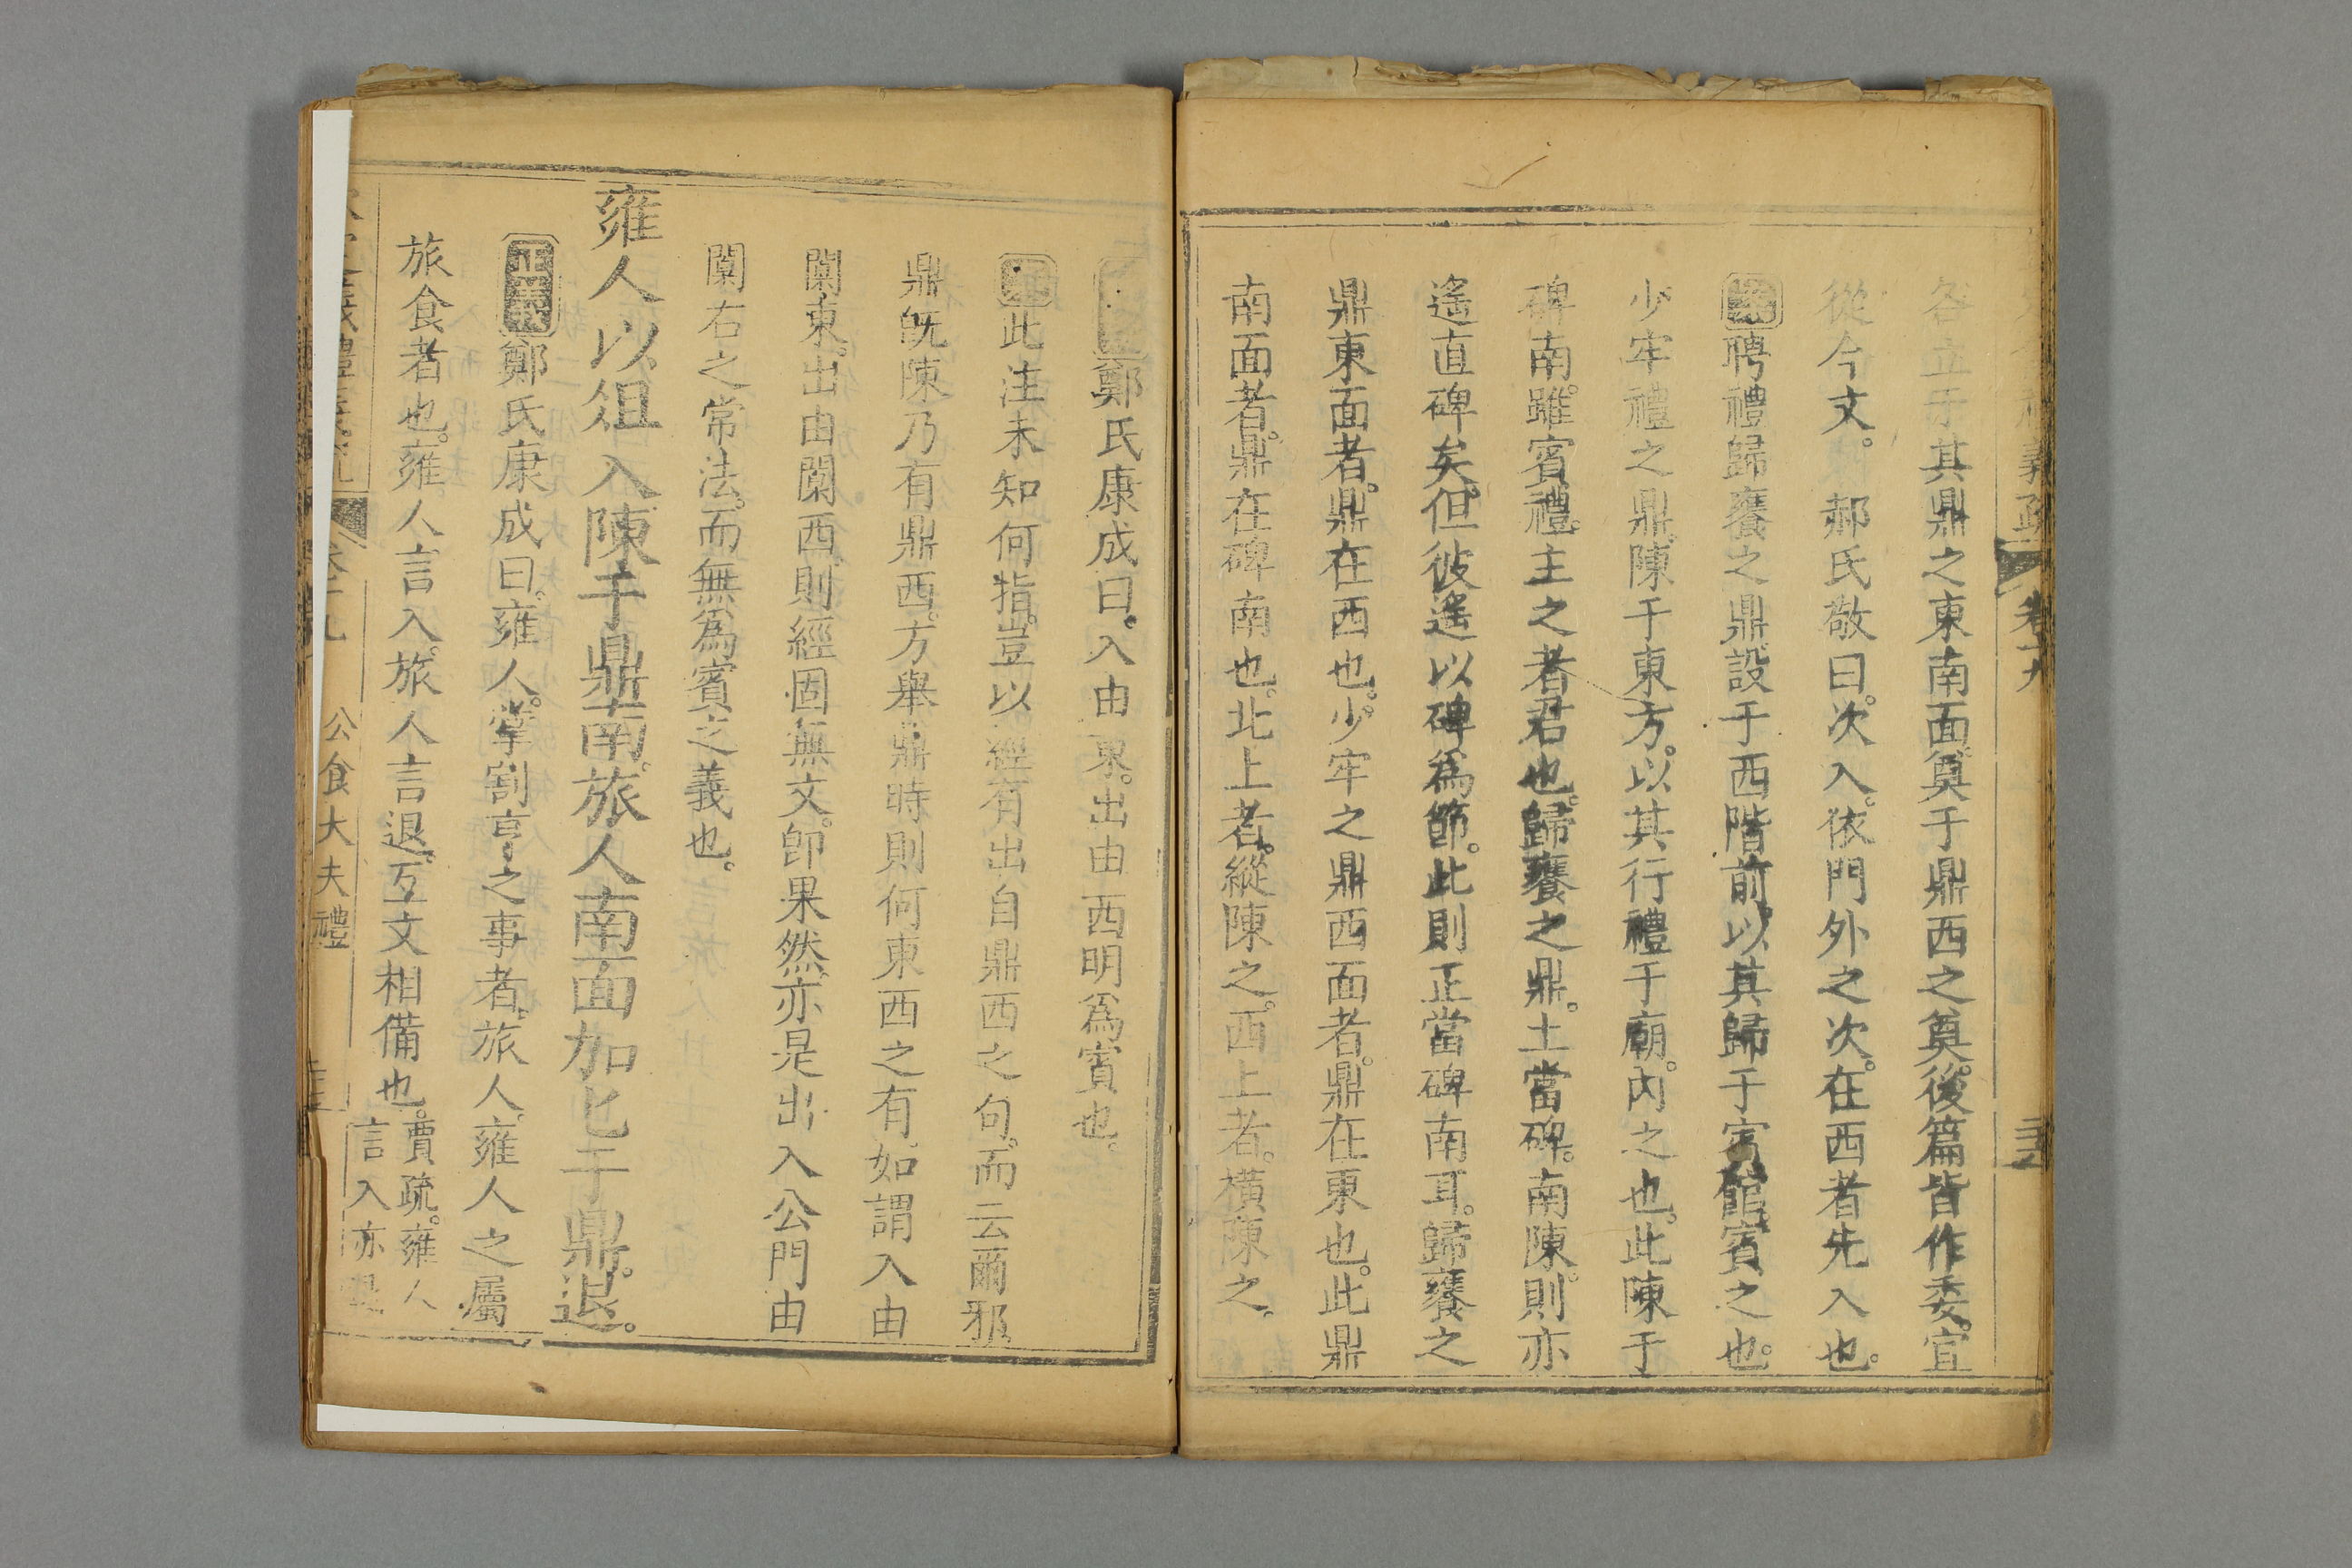 義疏 卷十九
各立于其鼎之東南面奠于鼎西之奠後篇皆作委宜
從今文。郝氏敬曰。次入。依門外之次。在西者先入也。
聘禮歸饔之鼎設于西階前。以其歸于賓館。賓之也。
少牢禮之鼎。陳于東方。以其行禮于廟。內之也。此陳于
碑南。雖賓禮。主之者君也。歸饔之鼎。土當碑。南陳。則亦
遙直碑矣。但彼遙以碑為節。此則正當碑南耳。歸饔之
鼎東面者。鼎在西也。少牢之鼎西面者。鼎在東也。此鼎
南面者。鼎在碑南也。北上者。縱陳之。西上者。橫陳之。
鄭氏康成曰。入由東。出由西。明為賓也。
此注未知何指。豈以經有出自鼎西之句。而云爾邪。
鼎既陳乃有鼎西。方舉鼎時則何東西之有。如謂入由
闑東。出由闑西。則經固無文。即果然。亦是出入公門由
闑右之常法。而無為賓之義也。
雍人以俎入陳于鼎南。旅人南面加匕于鼎。退。
正義鄭氏康成曰。雍人。掌割亨之事者。旅人。雍人之屬
旅食者也。雍人言入。旅人言退。互文相備也。賈疏。雍人
言入亦退
公食大夫禮